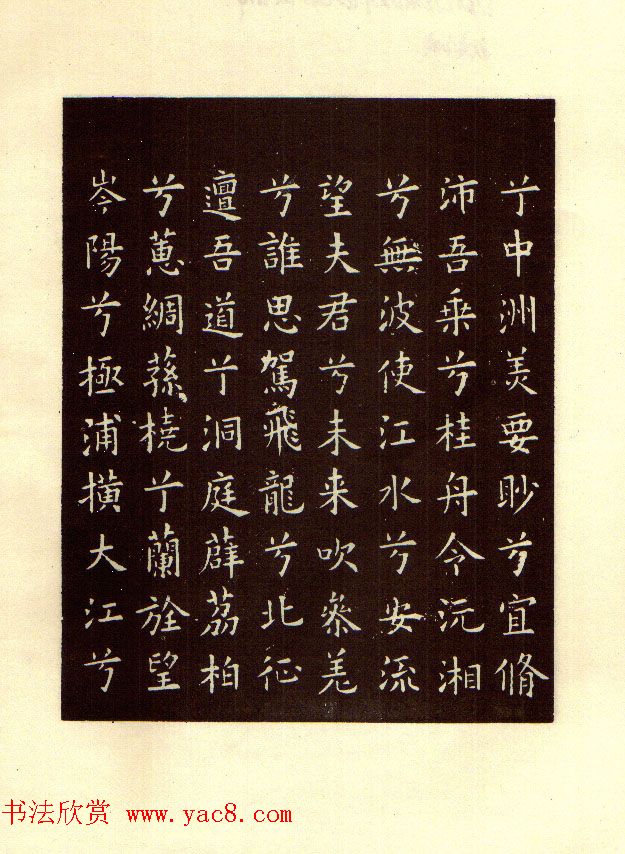 兮中洲美要眇兮宜脩
沛吾乗兮桂舟令沅湘
兮無波使江水兮安流
望夫君兮未来吹參差
兮誰思駕飛龍兮北征
邅吾道兮洞庭薜荔柏
兮蕙綢蓀橈兮蘭旌望
岑陽兮極浦横大江兮
书法欣赏 www.yac8.com